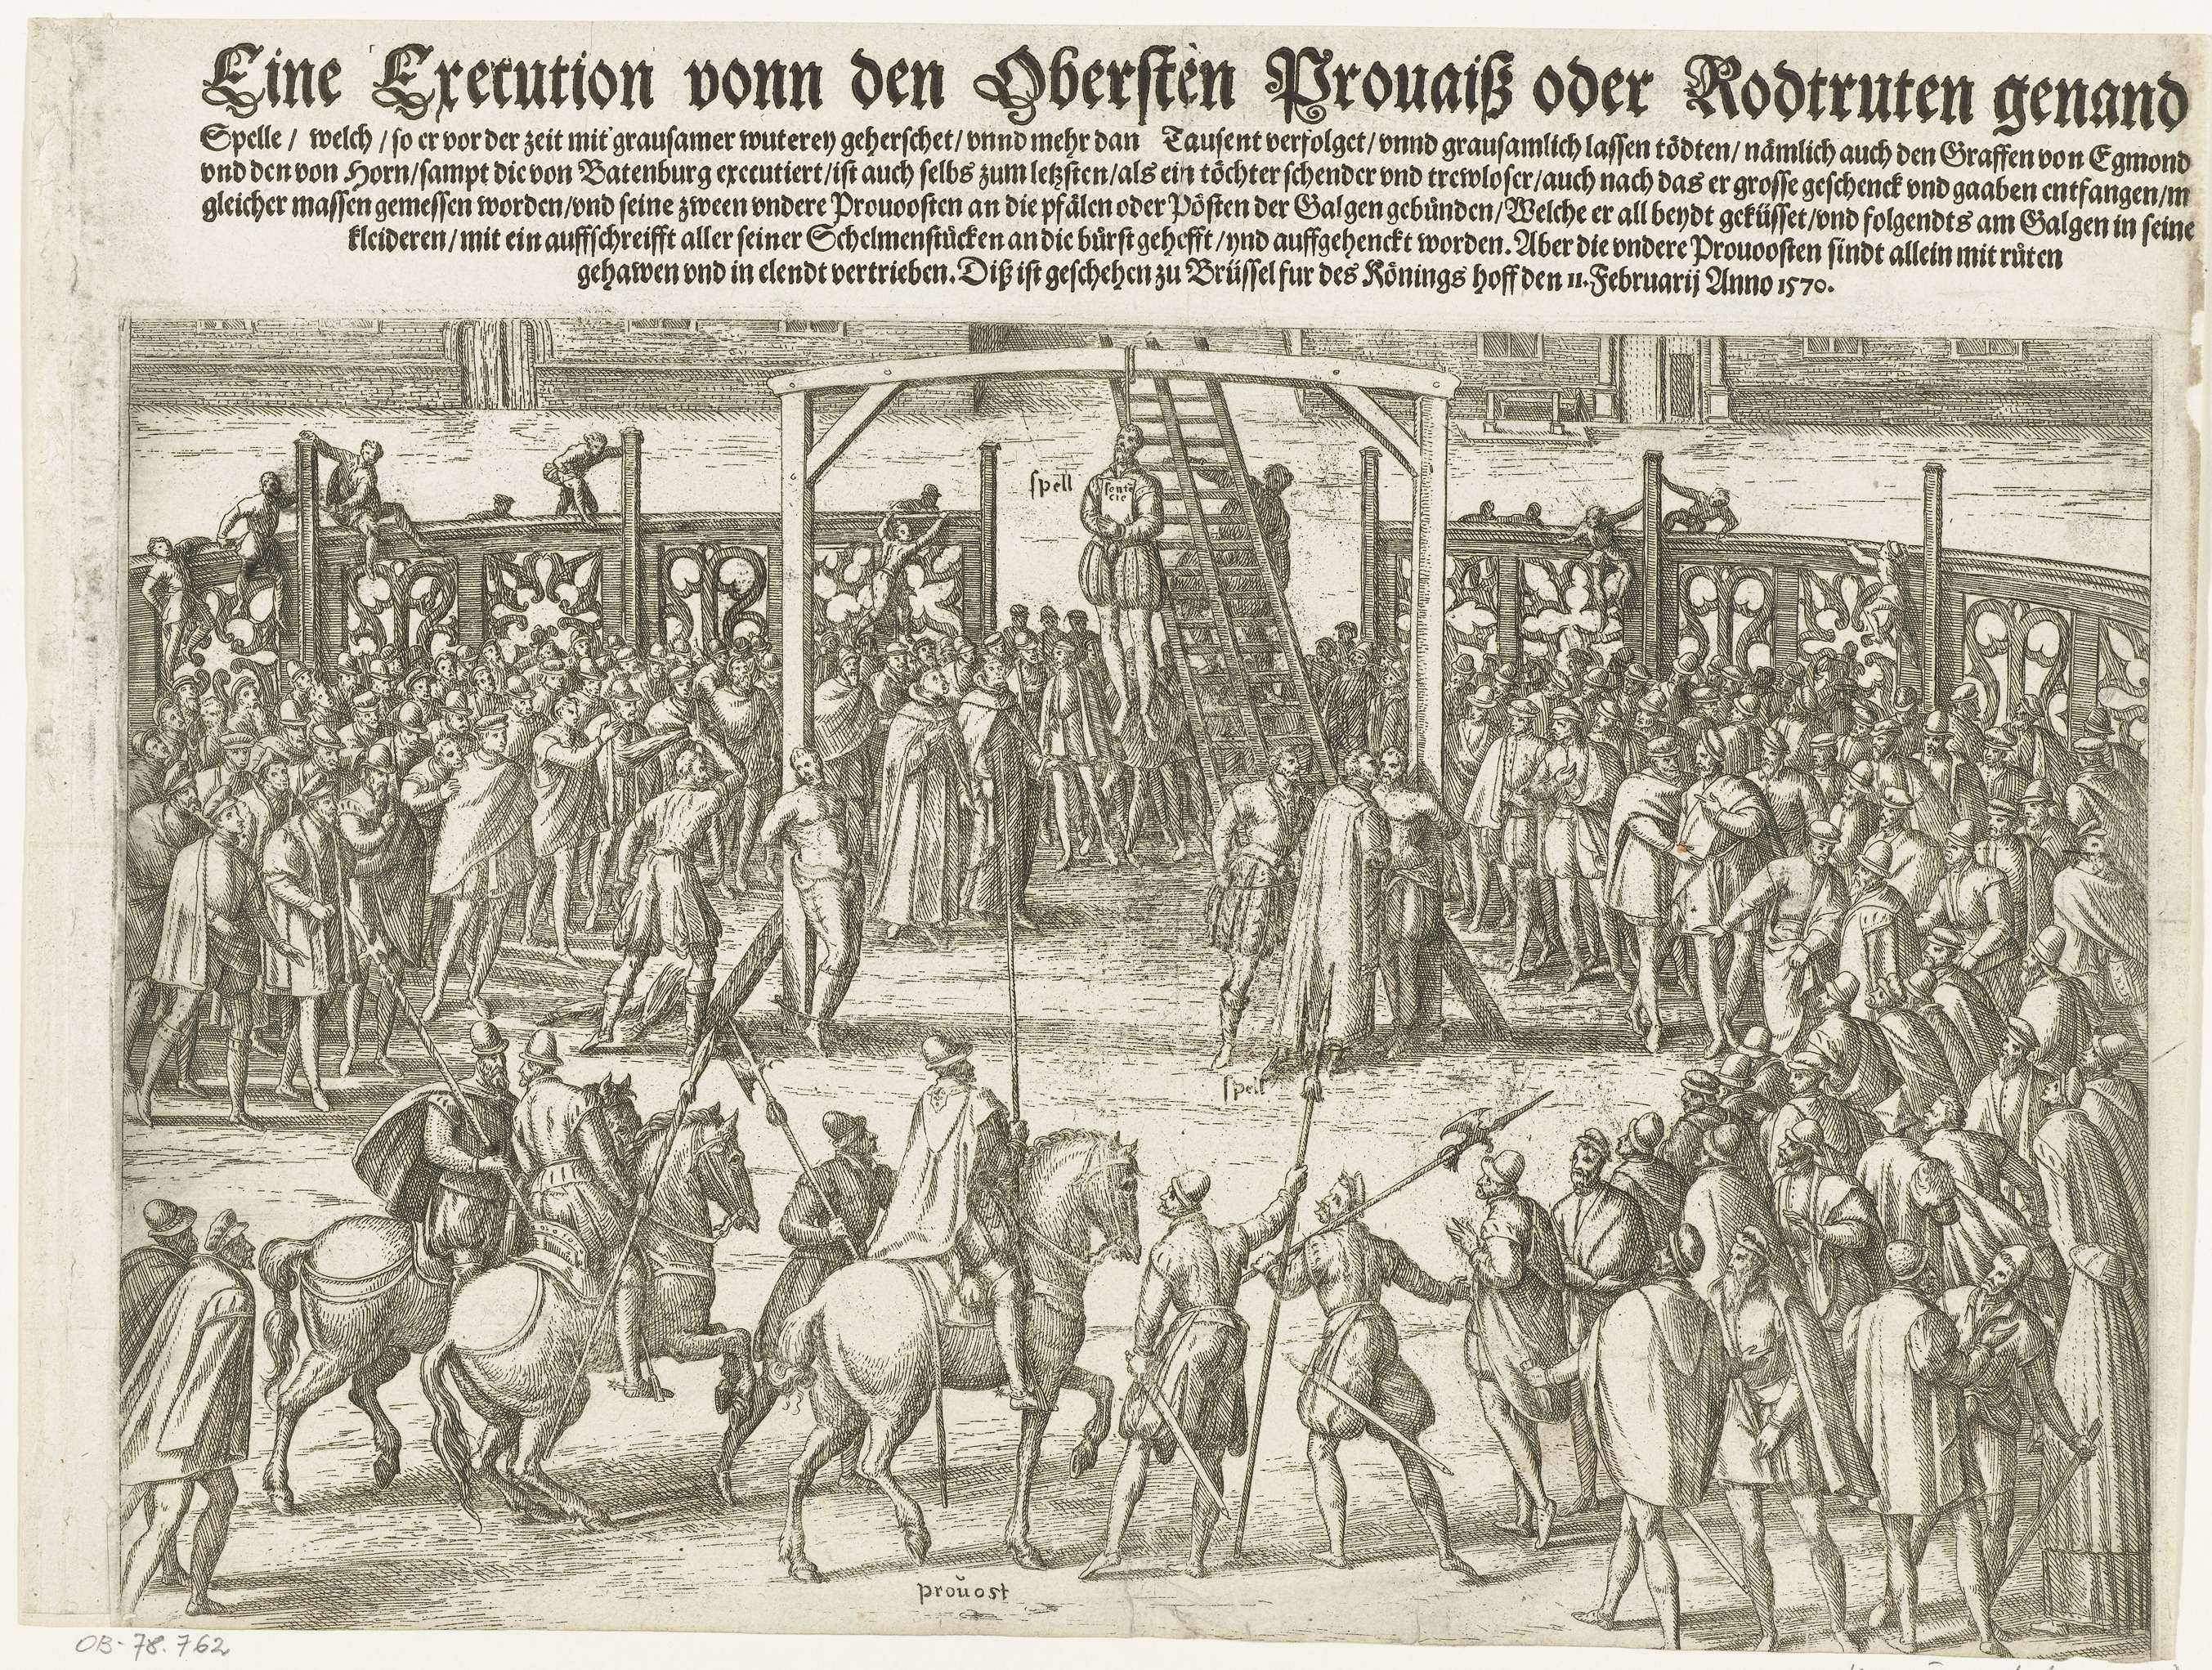 Eine Execution vonn den Obersten Prouaiß oder Rodtruten genand
Spelle / welch / so er vor der zeit mit grausamer wuterey geherschet / vnnd mehr dan Tausent verfolget / vnnd grausamlich lassen tödten / nämlich auch den Graffen von Egmond
vnd den von Horn / sampt die von Batenburg executiert / ist auch selbs zum letzsten / als ein töchter schender vnd trewloser / auch nach das er grosse geschenck vnd gaaben entfangen / m
gleicher massen gemessen worden / vnd seine zween vndere Prouoosten an die pfälen oder Pösten der Galgen gebünden / Welche er all beydt geküsset / vnd folgendts am Galgen in seine
kleideren / mit ein auffschreifft aller seiner Schelmenstücken an die bürst gehefft / vnd auffgehenckt worden. Aber die vndere Prouoosten sindt allein mit rüten
gehawen vnd in elendt vertrieben. Diß ist geschehen zu Brüssel fur des Könings hoff den 11. Februarij Anno 1570.
spell
sente
cie
spell
prouost
OB-78.762